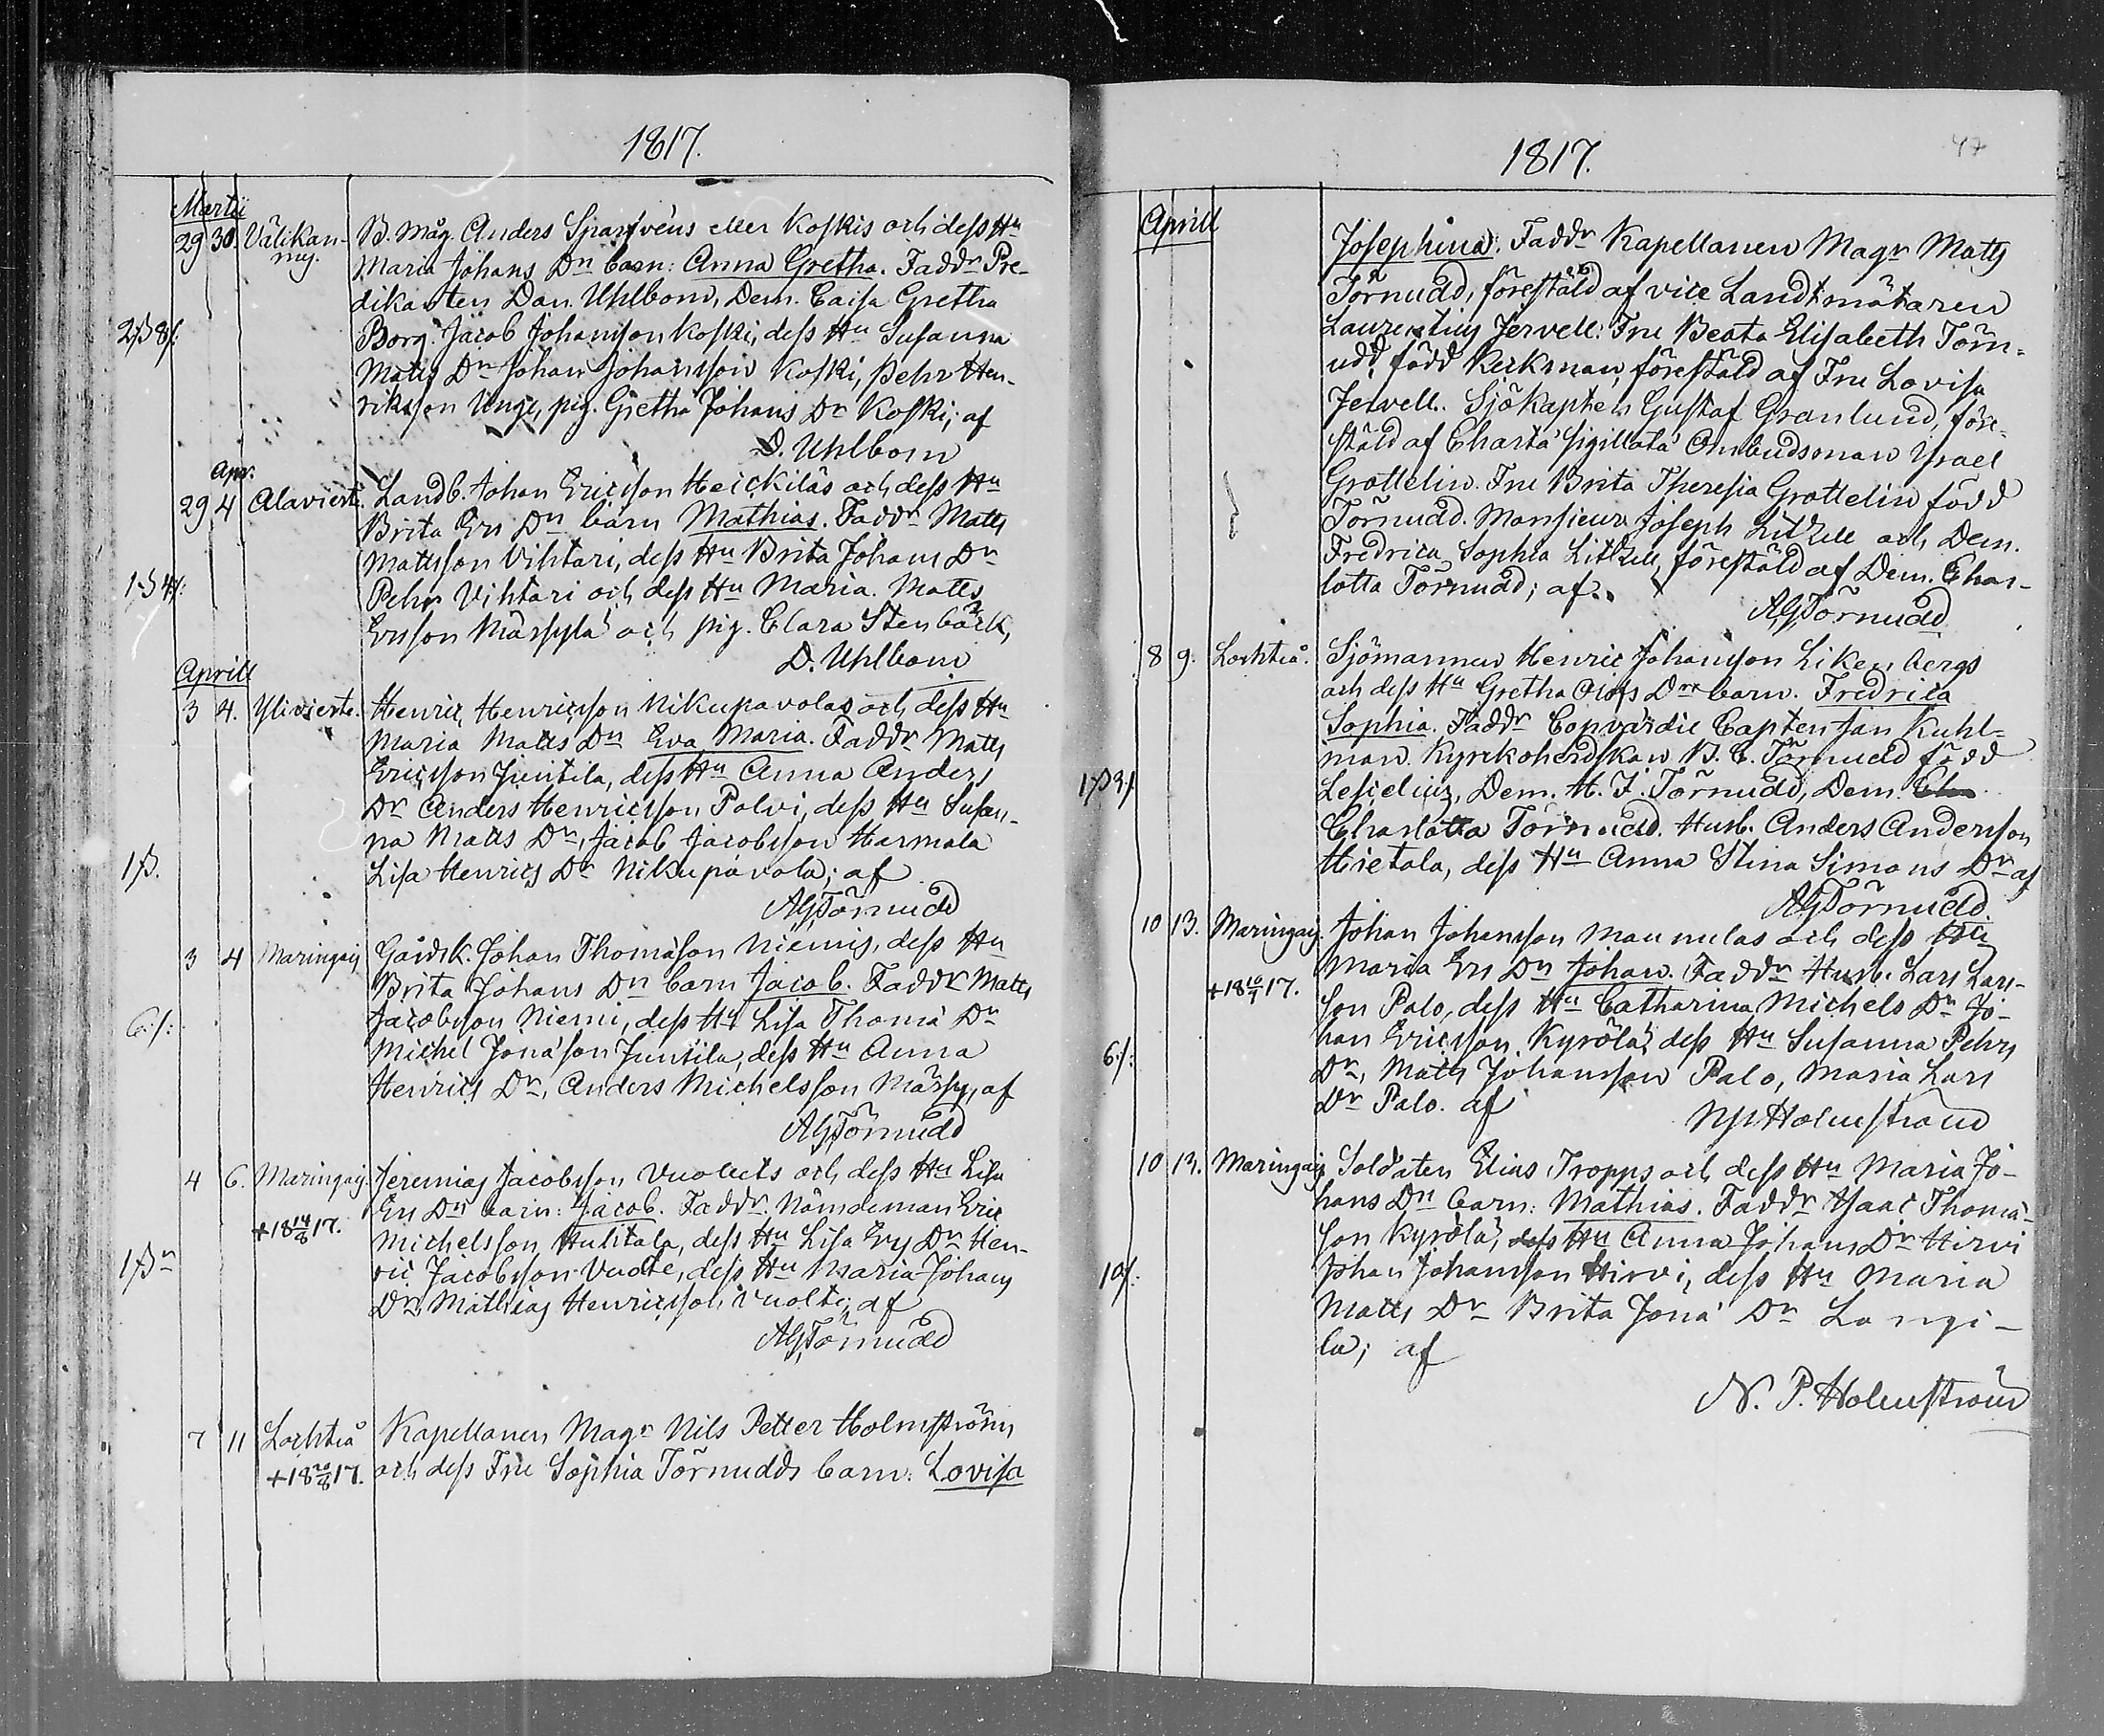 1817.
Martii
29 30. Välikan- B. Måg. Anders Sparfvéns eller Koskis och dess Hu
nus. Maria Johans Dr barn: Anna Gretha. Faddr Pre-
dikanten Dan. Uhlbom, Dem. Caisa Gretha
2ß 8/: Borg. Jacob Johansson Koski, dess Hu Susanna
Matts Dr Johan Johansson Koski, Pehr Hen-
riksson Unge, pig. Gretha Johans Dr Koski; af
D. Uhlbom
Apr.
29 4 Alaviert. Landb. Johan Ericsson Heickiläs och dess Hu
Brita Ers Dr barn Mathias. Faddr Matts
Mattsson Vihtari, dess Hu Brita Johans Dr
1ß 4/: Pehr Vihtari och dess Hu Maria. Matts
Ersson Märsylä och pig. Clara Stenbäck,
D. Uhlbom
Aprill
3 4. Ylivierte. Henric Henricsson Nikupavolas och dess Hu
Maria Matts Dr Eva Maria. Faddr Matts
Ericsson Juntila, dess Hu Anna Anders
Dr Anders Henricsson Palvi, dess Hu Susan-
na Matts Dr, Jacob Jacobsson Harmala
1ß. Lisa Henrics Dr Nikupavola; af
AGTörnudd
3 4 Maringais Gårdk. Johan Thomasson Niemis, dess Hu
Brita Johans Dr barn Jacob. Faddr Matts
6/: Jacobsson Niemi, dess Hu Lisa Thomä Dr
Michel Jonäson Juntila, dess Hu Anna
Henrics Dr, Anders Michelsson Märsy, af
AGTörnudd
4 6. Maringais. Jeremias Jacobsson Vuoltets och dess Hu Lisa
Ers Dr barn: Jacob. Faddr. Nämdeman Eric
+18 14/8 17. Michelsson Huhtala, dess Hu Lisa Ers Dr Hen-
1ß ric Jacobsson Vuolte, dess Hu Maria Johans
Dr Mathias Henricsson Vuolte; af
AGTörnudd
7 11 Lochteå Kapellanen Magr Nils Petter Holmströms
+18 20/8 17. och dess Fru Sophia Törnudds barn: Lovisa
1817.
47
Aprill
Josephina. Faddr Kapellanen Magr Matts
Törnudd, föreståld af vice Landtmätaren
Laurentius Jervell: Fru Beata Elisabeth Törn-
udd, född Keckman, föreståld af Fru Lovisa
Jervell. Sjökapten Gustaf Granlund, före-
ståld af Charta Sigillata Ombudsman Ysrael
Grottelin. Fru Brita Theresia Grottelin född
Törnudd. Monsieur Joseph Litzell och Dem.
Fredrica Sophia Litzell, föreståld af Dem. Char-
lotta Törnudd; af
AGTörnudd
8 9. Lochteå. Sjömannen Henric Johansson Likenbergs
och dess Hu Gretha Olofs Dr barn. Fredrica
Sophia. Faddr Copvardie Capten Jan Kuhl-
man. Kyrkoherdskan B. C. Törnudd född
1ß 3/: Lesielius, Dem. M. J. Törnudd, Dem.
Charlotta Törnudd. Husb. Anders Andersson
Hietala, dess Hu Anna Stina Simons Dr af
AGTörnudd
10 13. Maringais. Johan Johansson Maunulas och dess Hu
Maria Ers Dr Johan. Faddr Husb. Lars Lars-
+18 10/7 17. son Palo, dess Hu Catharina Michels Dr Jo-
6/: han Ericsson Kyrölä, dess Hu Susanna Pehrs
Dr, Matts Johansson Palo, Maria Lars
Dr Palo. af NPHolmström
10 13. Maringais Soldaten Elias Tropps och dess Hu Maria Jo-
hans Dr barn: Mathias. Faddr Ysaac Thomä-
son Kyrölä, dess Hu Anna Johans Dr Hirvi
10/: Johan Johansson Hirvi, dess Hu Maria
Matts Dr Brita Jonä Dr Langi-
la; af
N. P. Holmström